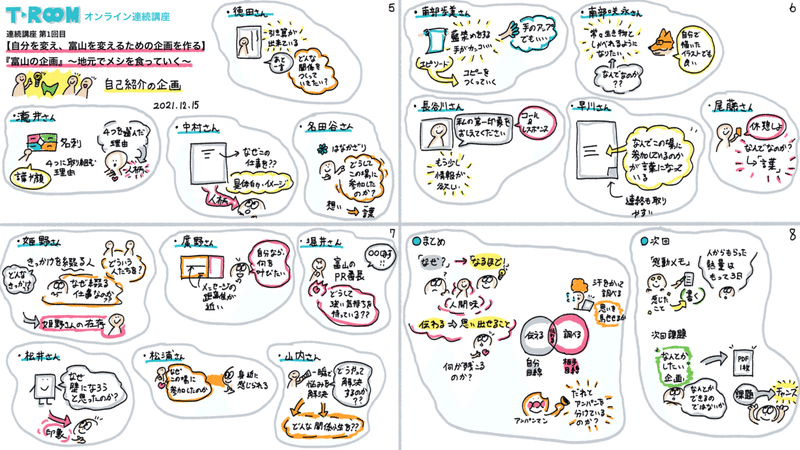 T-ROOM オンライン連続講座
連続講座 第1回目
【自分を変え、富山を変えるための企画を作る】
『富山の企画』〜地元でメシを食っていく〜
自己紹介の企画
2021.12.15
5
・徳田さん
引き算が
出来ている
あと
一言
どんな
関係を
つくって
いきたい?
・瀧井さん
名刺
4つに取り組む
理由
4つを選んだ
理由
人柄
・中村さん
なぜこの
仕事を??
具体的なイメージ
人柄
・名田谷さん
はながざり
どうして
この場に
参加した
のか?
想い
言葉
6
手のアップ
でもいい
エピソード
コピーを
つくっていく
常に生き物と
しゃべれるように
なりたい
なんでなのか??
自分で
描いた
イラストでも
良い
・長谷川さん
私の第一印象を
おしえてください
コール&
レスポンス
もう少し
情報が
欲しい
・早川さん
なんでこの場に
参加しているのか
が言葉になって
いる
連絡も取り
やすい
・尾藤さん
休憩しよ
なんでなのか?
「言葉」
7
・姫野さん
きっかけを綴る人
どんな
きっかけ?
どういう
人たちを?
なぜ綴る
仕事なのか?
姫野さんの存在
・廣野さん
メッセージの
距離感が
近い
自分なら、
何を
叶えたい
・堀井さん
富山の
PR番長
〇〇ほう!!
どうして
強い気持ちを
持っている??
・松井さん
なぜ
壁になろう
と思ったのか?
印象
・松浦さん
なぜ
この場に
参加したのか
身近に
感じられる
・山内さん
一瞬で
悩みを
解決
どうやって
解決
するのか?
??
どんな関係性を??
8
まとめ
「なぜ?」「なるほど!」
人間味
伝わる⇒思い出せること
何が残こる
のか?
汗をかいて
調べる
思いを
馳せるか
伝える
調べる
自分
目線
相手
目線
アンパンマン
だれに
アンパンを
分けている
のか?
次回
「感動メモ」
感じたこと
書く
人からもらった
熱量は
もって3日
次回課題
なんとか
したい
企画
PDF
1枚
なんとか
できるの
ではないか
課題
チャンス